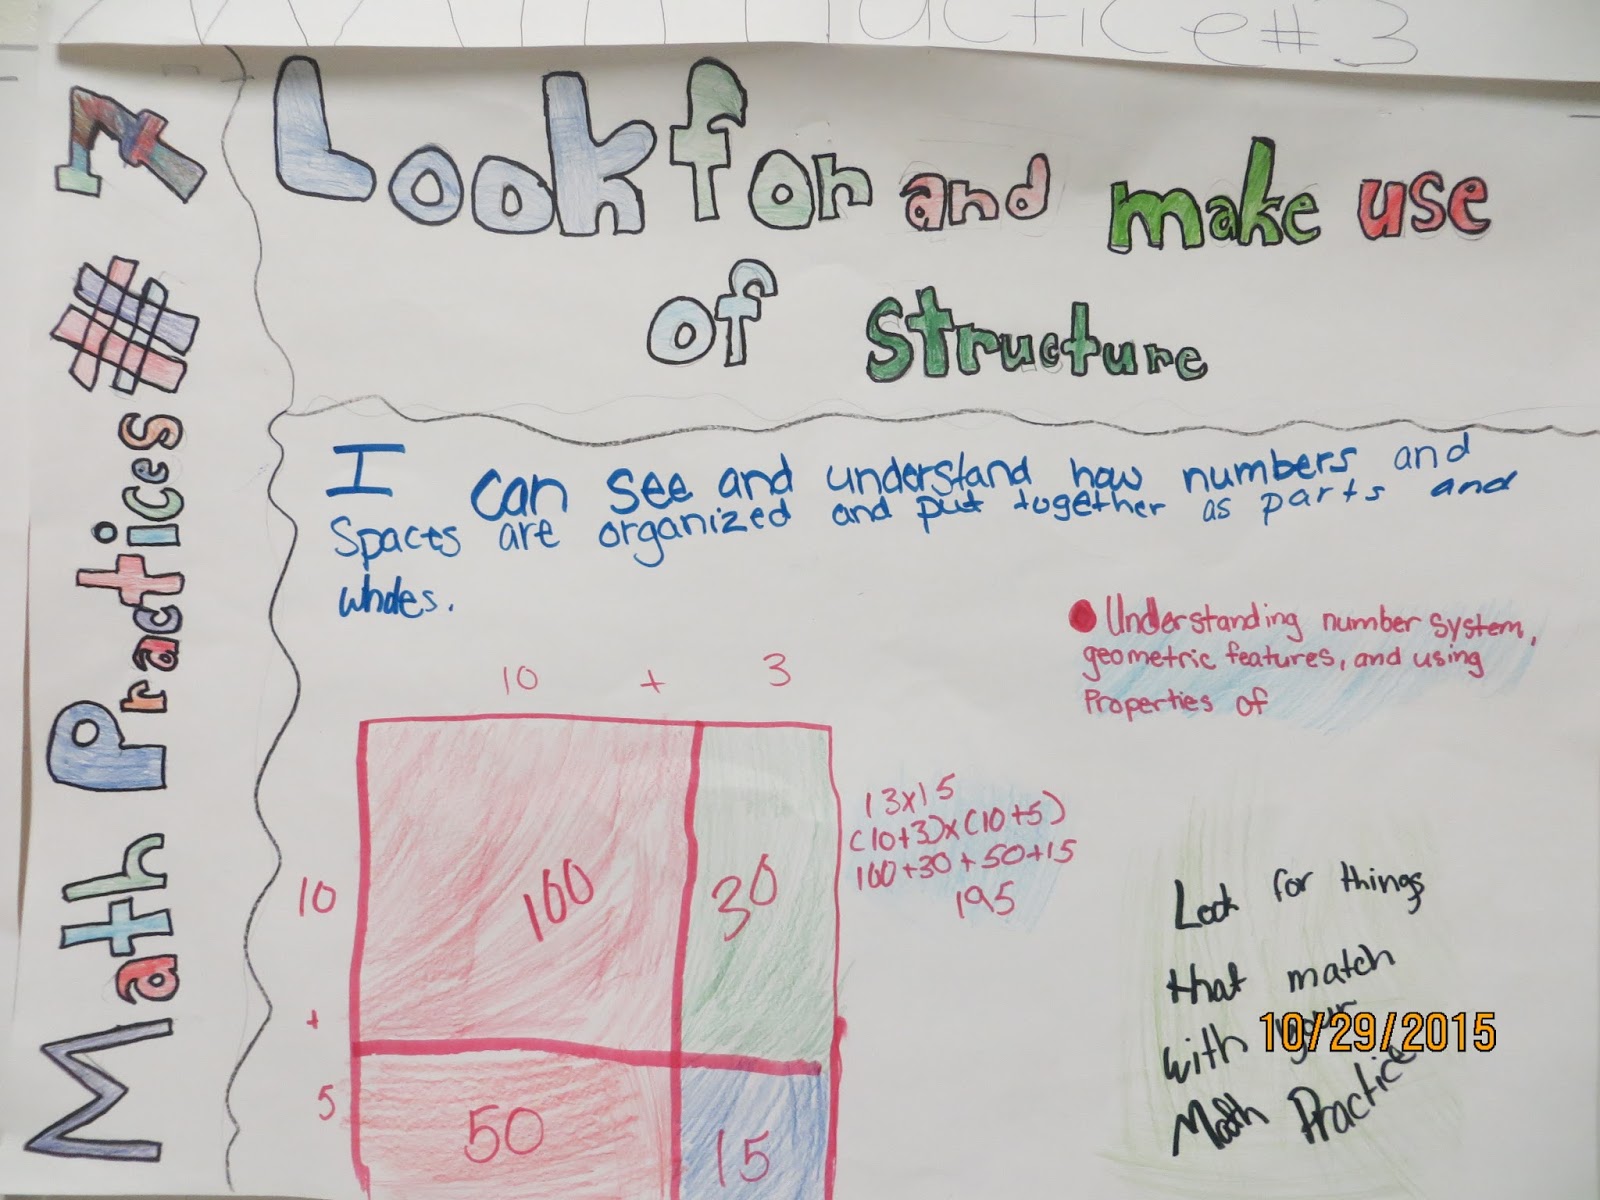 Practice#3
Math Practices #7
Look for and make use
of structure
I can see and understand how numbers and
Spaces are organized and put together as parts and
wholes.
Understanding number system,
geometric features, and using
Properties of
10 + 3
13x15
(10+3)x(10+5)
100+30+50+15
195
10
100
30
+
5
50
15
Look for things
that match
with your
Math Practice
10/29/2015